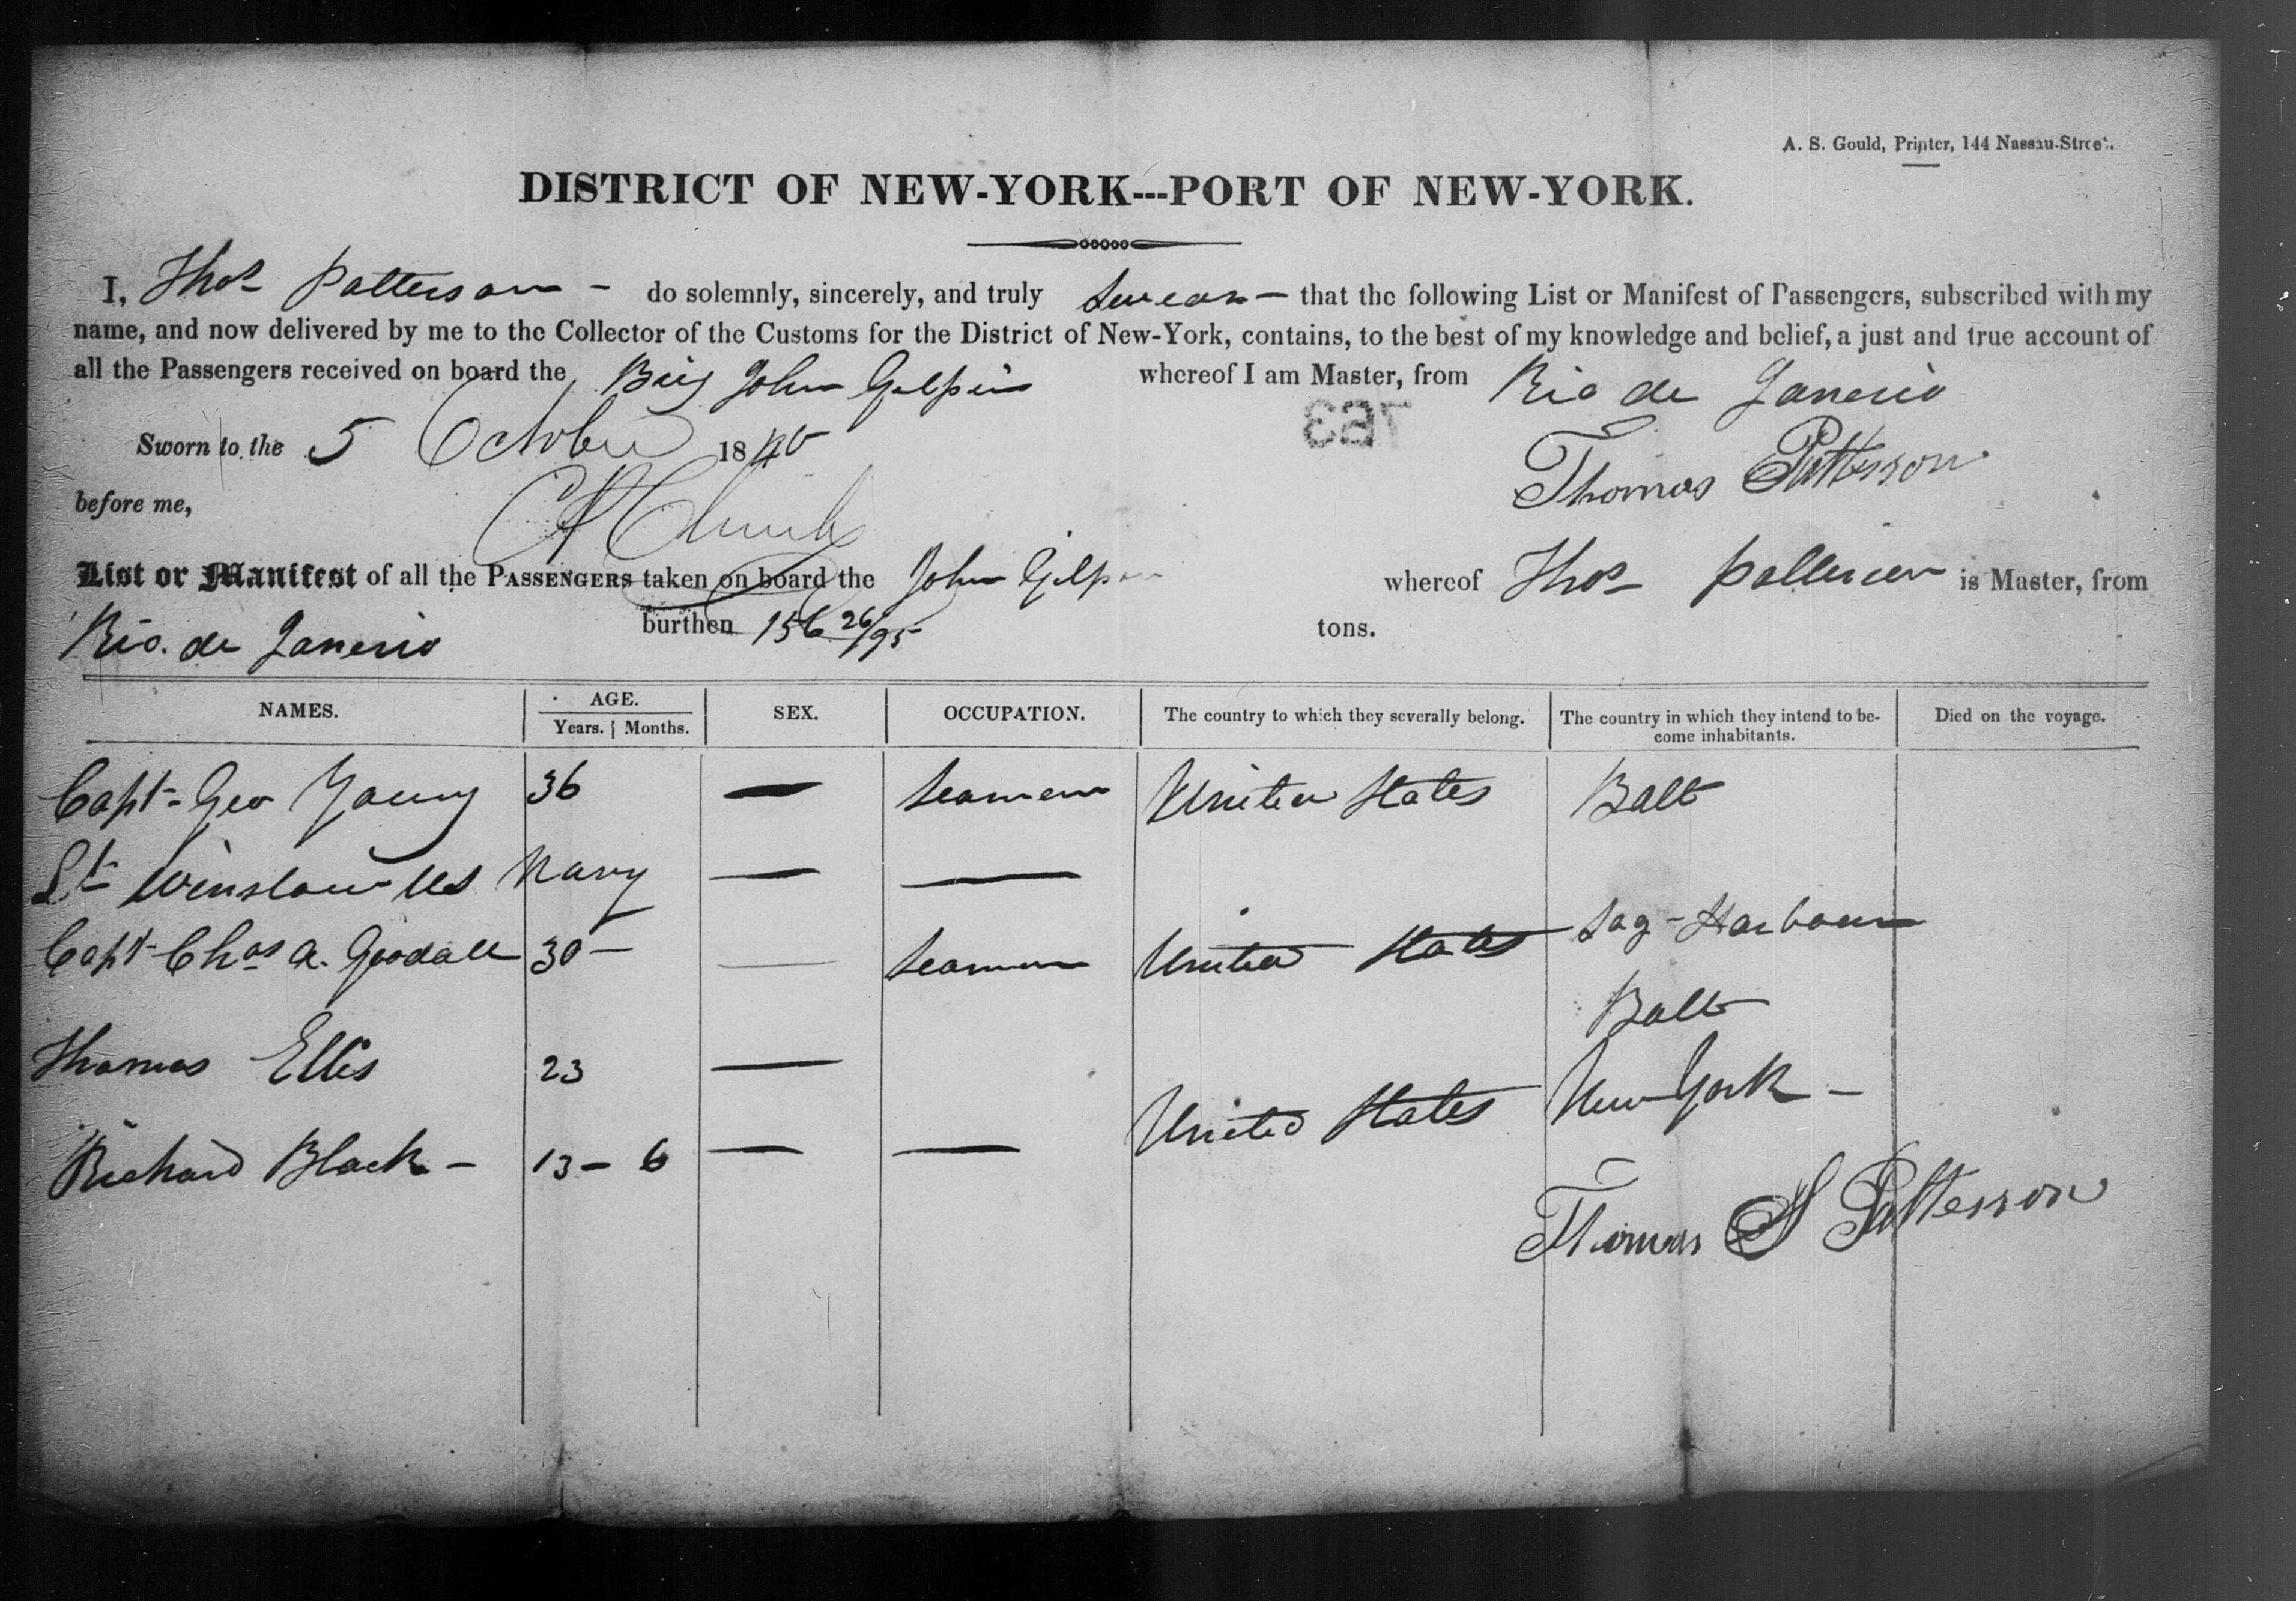 A. S. Gould, Printer, 144 Nassau-Street.
DISTRICT OF NEW-YORK---PORT OF NEW-YORK.
I, Thos Patterson - do solemnly, sincerely, and truly swear - that the following List or Manifest of Passengers, subscribed with my
name, and now delivered by me to the Collector of the Customs for the District of New-York, contains, to the best of my knowledge and belief, a just and true account of
all the Passengers received on board the Brig John Gilpin whereof I am Master, from Rio de Janerio
Sworn to the 5 October 1840 Thomas Patterson
before me,
List or Manifest of all the PASSENGERS taken on board the John Gilpin whereof Thos Patterson is Master, from
Rio. de Janerio burthen 156 26/95 tons.
NAMES. AGE. SEX. OCCUPATION. The country to which they severally belong. The country in which they intend to be-
come inhabitants. Died on the voyage.
Years. Months.
Capt- Geo Young 36 — Seaman United States Balt
Lt Winslow US Navy — —
Capt Chas A. Goodall 30 — — Seaman United States Sag-Harbour
Balt
Thomas Ellis 23 —
Richard Black - 13 - 6 — — United States New York -
Thomas S Patterson